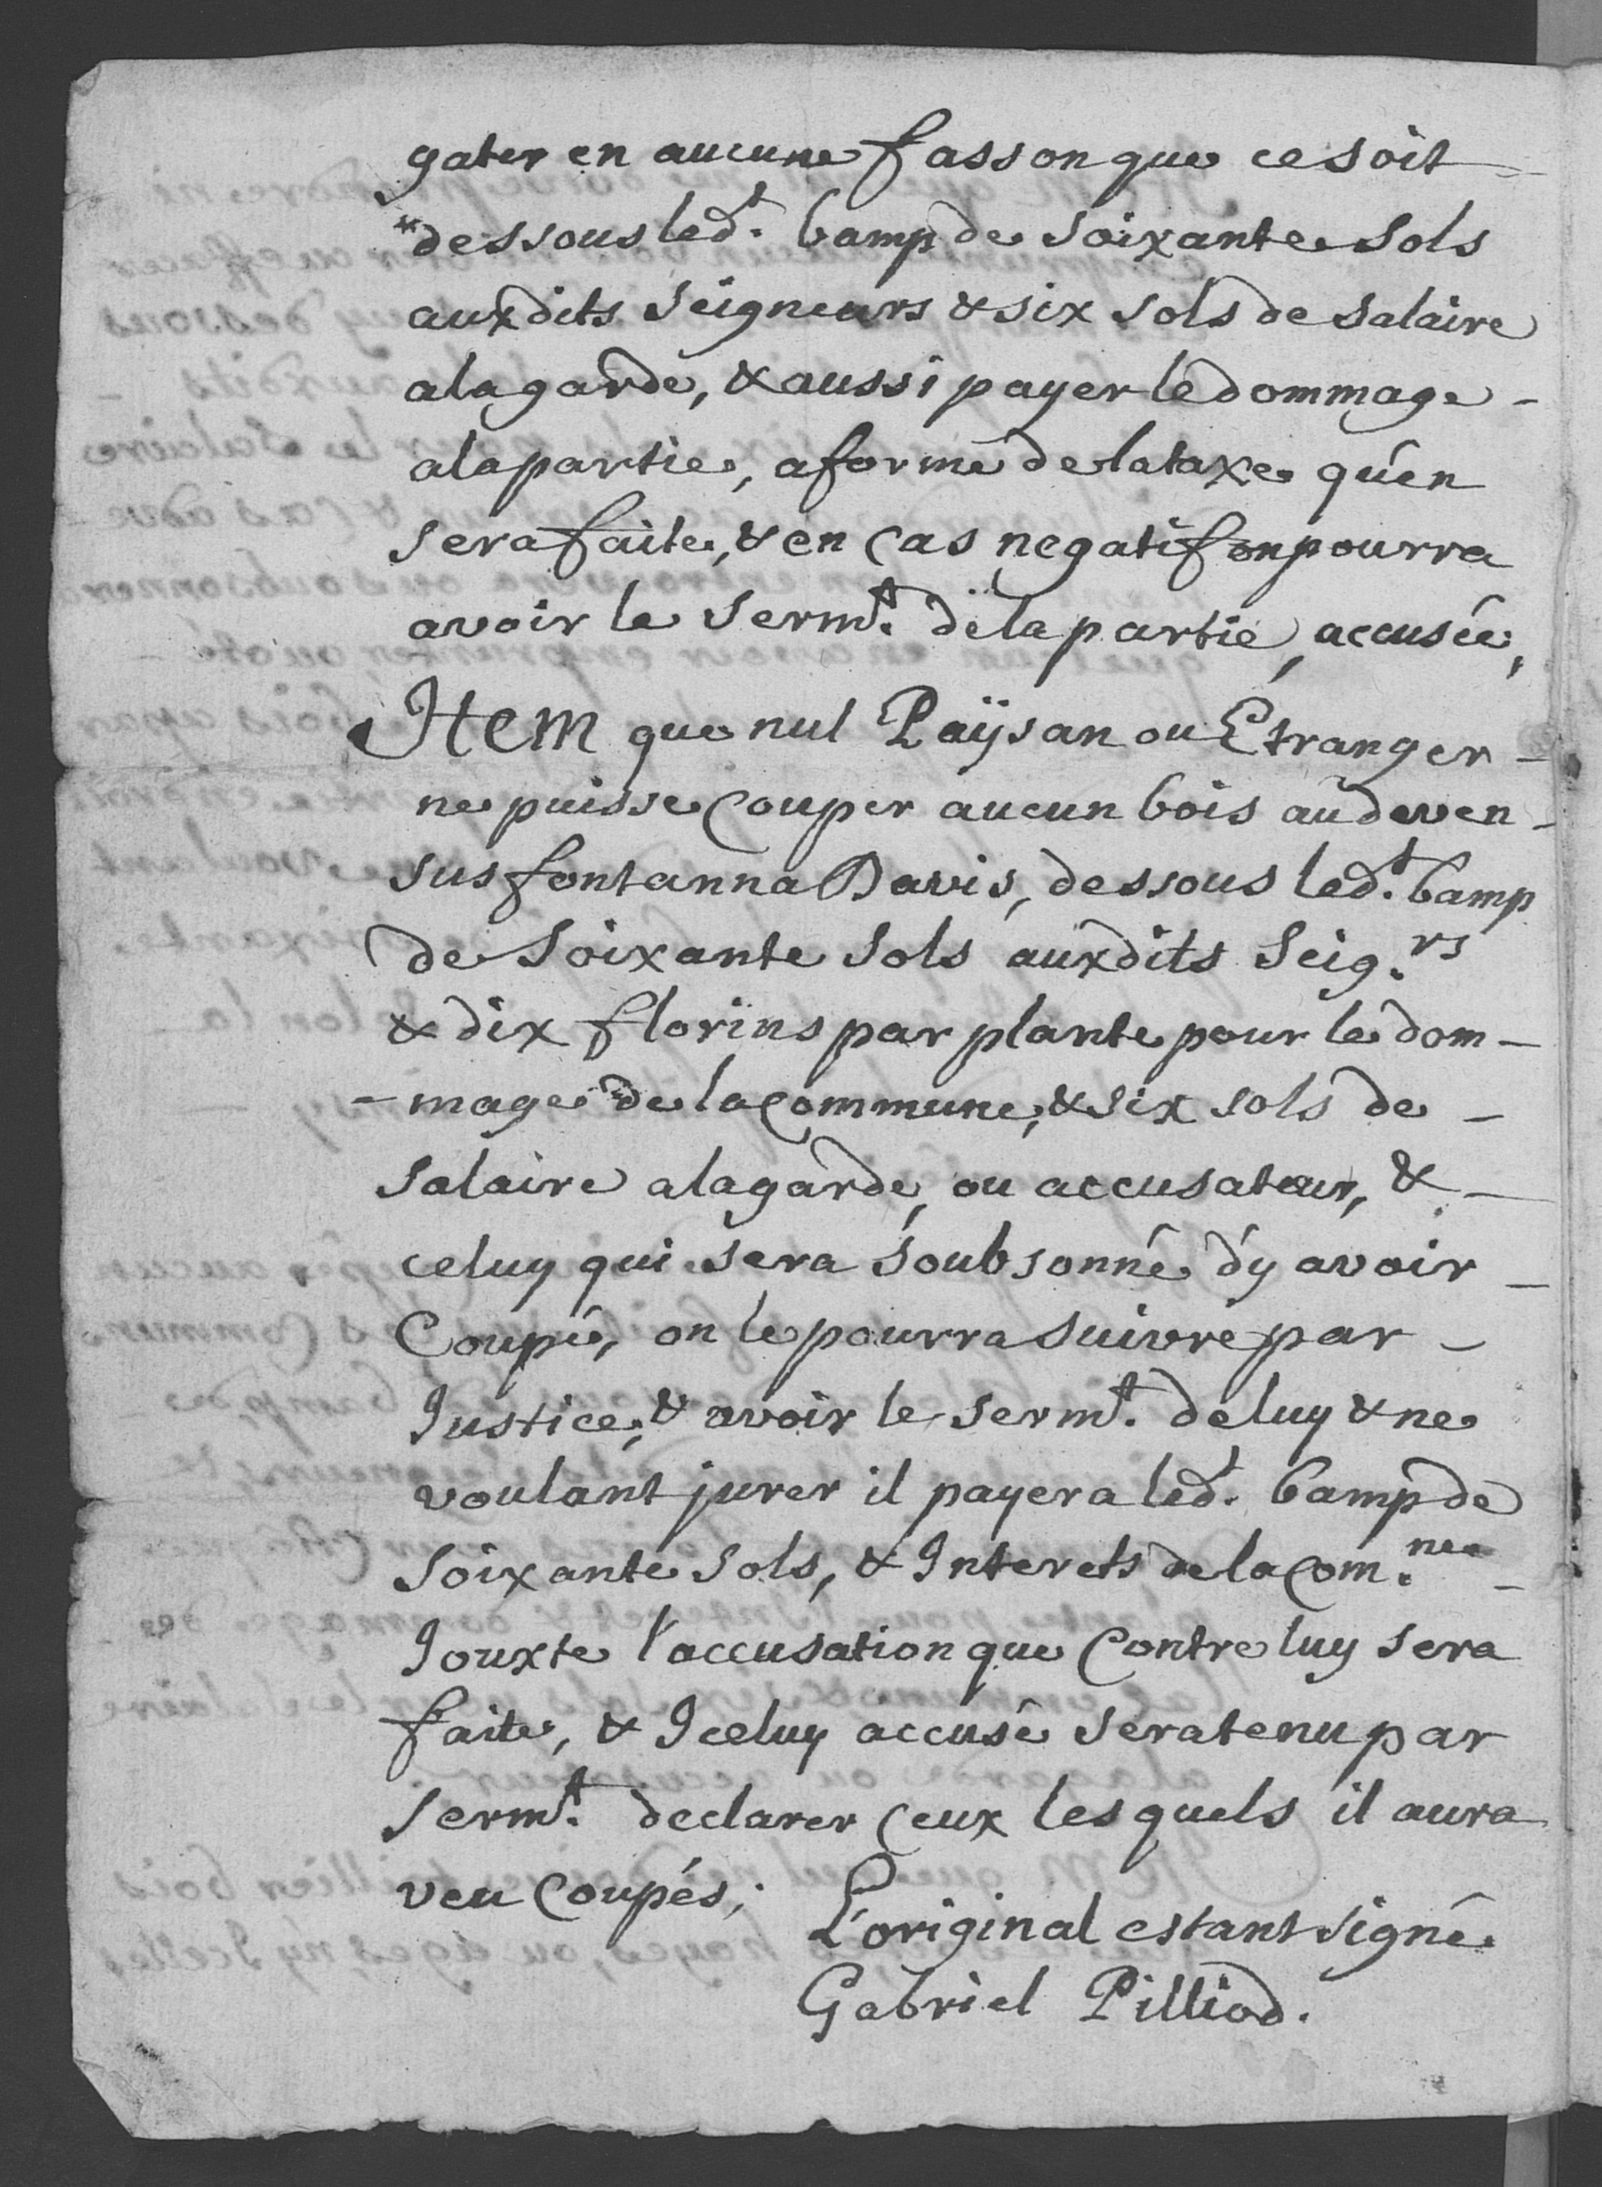 gater en aucune fasson que ce soit
dessous led.t bamp de soixante sols
auxdits seigneurs & six sols de salaire
a la garde, & aussi payer le dommage -
a la partie, a forme de la taxe qu'en
sera faite, & en cas negatif on pourra
avoir le serm.t de la partie accusée,
Item que nul Paÿsan ou Etranger -
ne puisse couper aucun bois au deven -
sus fontanna Davis, dessous led.t bamp
de soixante sols auxdits seig.rs
& dix florins par plante pour le dom -
- mage de la commune, & six sols de -
salaire a la garde, ou accusateur, & -
celuy qui sera soubsonné d'y avoir -
Coupé, on le pourra suivre par -
Justice, & avoir le serm.t de luy & ne
voulant jurer il payera led.t bamp de
soixante sols, & Interets de la com.ne -
Jouxte l'accusation que contre luy sera
faite, & Iceluy accusé sera tenu par
serm.t declarer ceux lesquels il aura
veu Coupés;
L'original estant signé
Gabriel Pilliod.